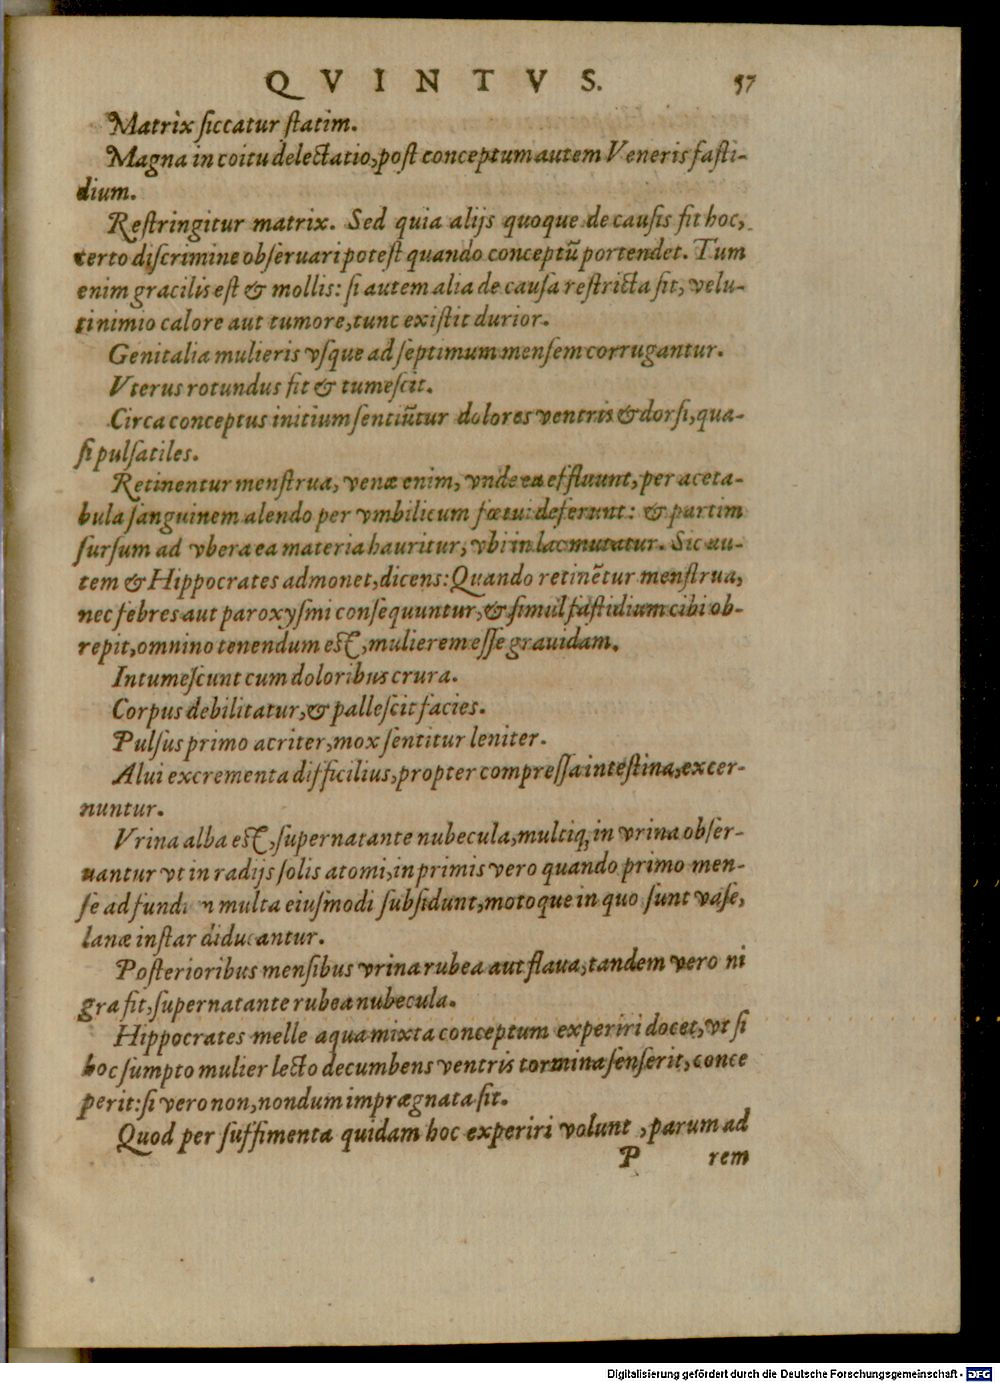 QVINTVS. 57
Matrix siccatur statim.
Magna in coitu delectatio, post conceptum autem Veneris fasti-
dium.
Restringitur matrix. Sed quia alijs quoque de causis fit hoc,
certo discrimine obseruari potest quando conceptũ portendet. Tum
enim gracilis est & mollis: si autem alia de causa restricta sit, velu-
ti nimio calore aut tumore, tunc existit durior.
Genitalia mulieris vsque ad septimum mensem corrugantur.
Vterus rotundus fit & tumescit.
Circa conceptus initium sentiũtur dolores ventris & dorsi, qua-
si pulsatiles.
Retinentur menstrua, venæ enim, vnde ea effluunt, per aceta-
bula sanguinem alendo per vmbilicum fœtui deferunt: & partim
sursum ad vbera ea materia hauritur, vbi in lac mutatur. Sic au-
tem & Hippocrates admonet, dicens: Quando retinẽtur menstrua,
nec febres aut paroxysmi consequuntur, & simul fastidium cibi ob-
repit, omnino tenendum est, mulierem esse grauidam.
Intumescunt cum doloribus crura.
Corpus debilitatur, & pallescit facies.
Pulsus primo acriter, mox sentitur leniter.
Alui excrementa difficilius, propter compressa intestina, excer-
nuntur.
Vrina alba est, supernatante nubecula, multiq; in vrina obser-
uantur vt in radijs solis atomi, inprimis vero quando primo men-
se ad fundum multa eiusmodi subsidunt, motoque in quo sunt vase,
lanæ instar diducantur.
Posterioribus mensibus vrina rubea aut flaua, tandem vero ni
gra fit, supernatante rubea nubecula.
Hippocrates melle aqua mixta conceptum experiri docet, vt si
hoc sumpto mulier lecto decumbens ventris tormina senserit, conce
perit: si vero non, nondum imprægnata sit.
Quod per suffimenta quidam hoc experiri volunt, parum ad
P rem
Digitalisierung gefördert durch die Deutsche Forschungsgemeinschaft - DFG